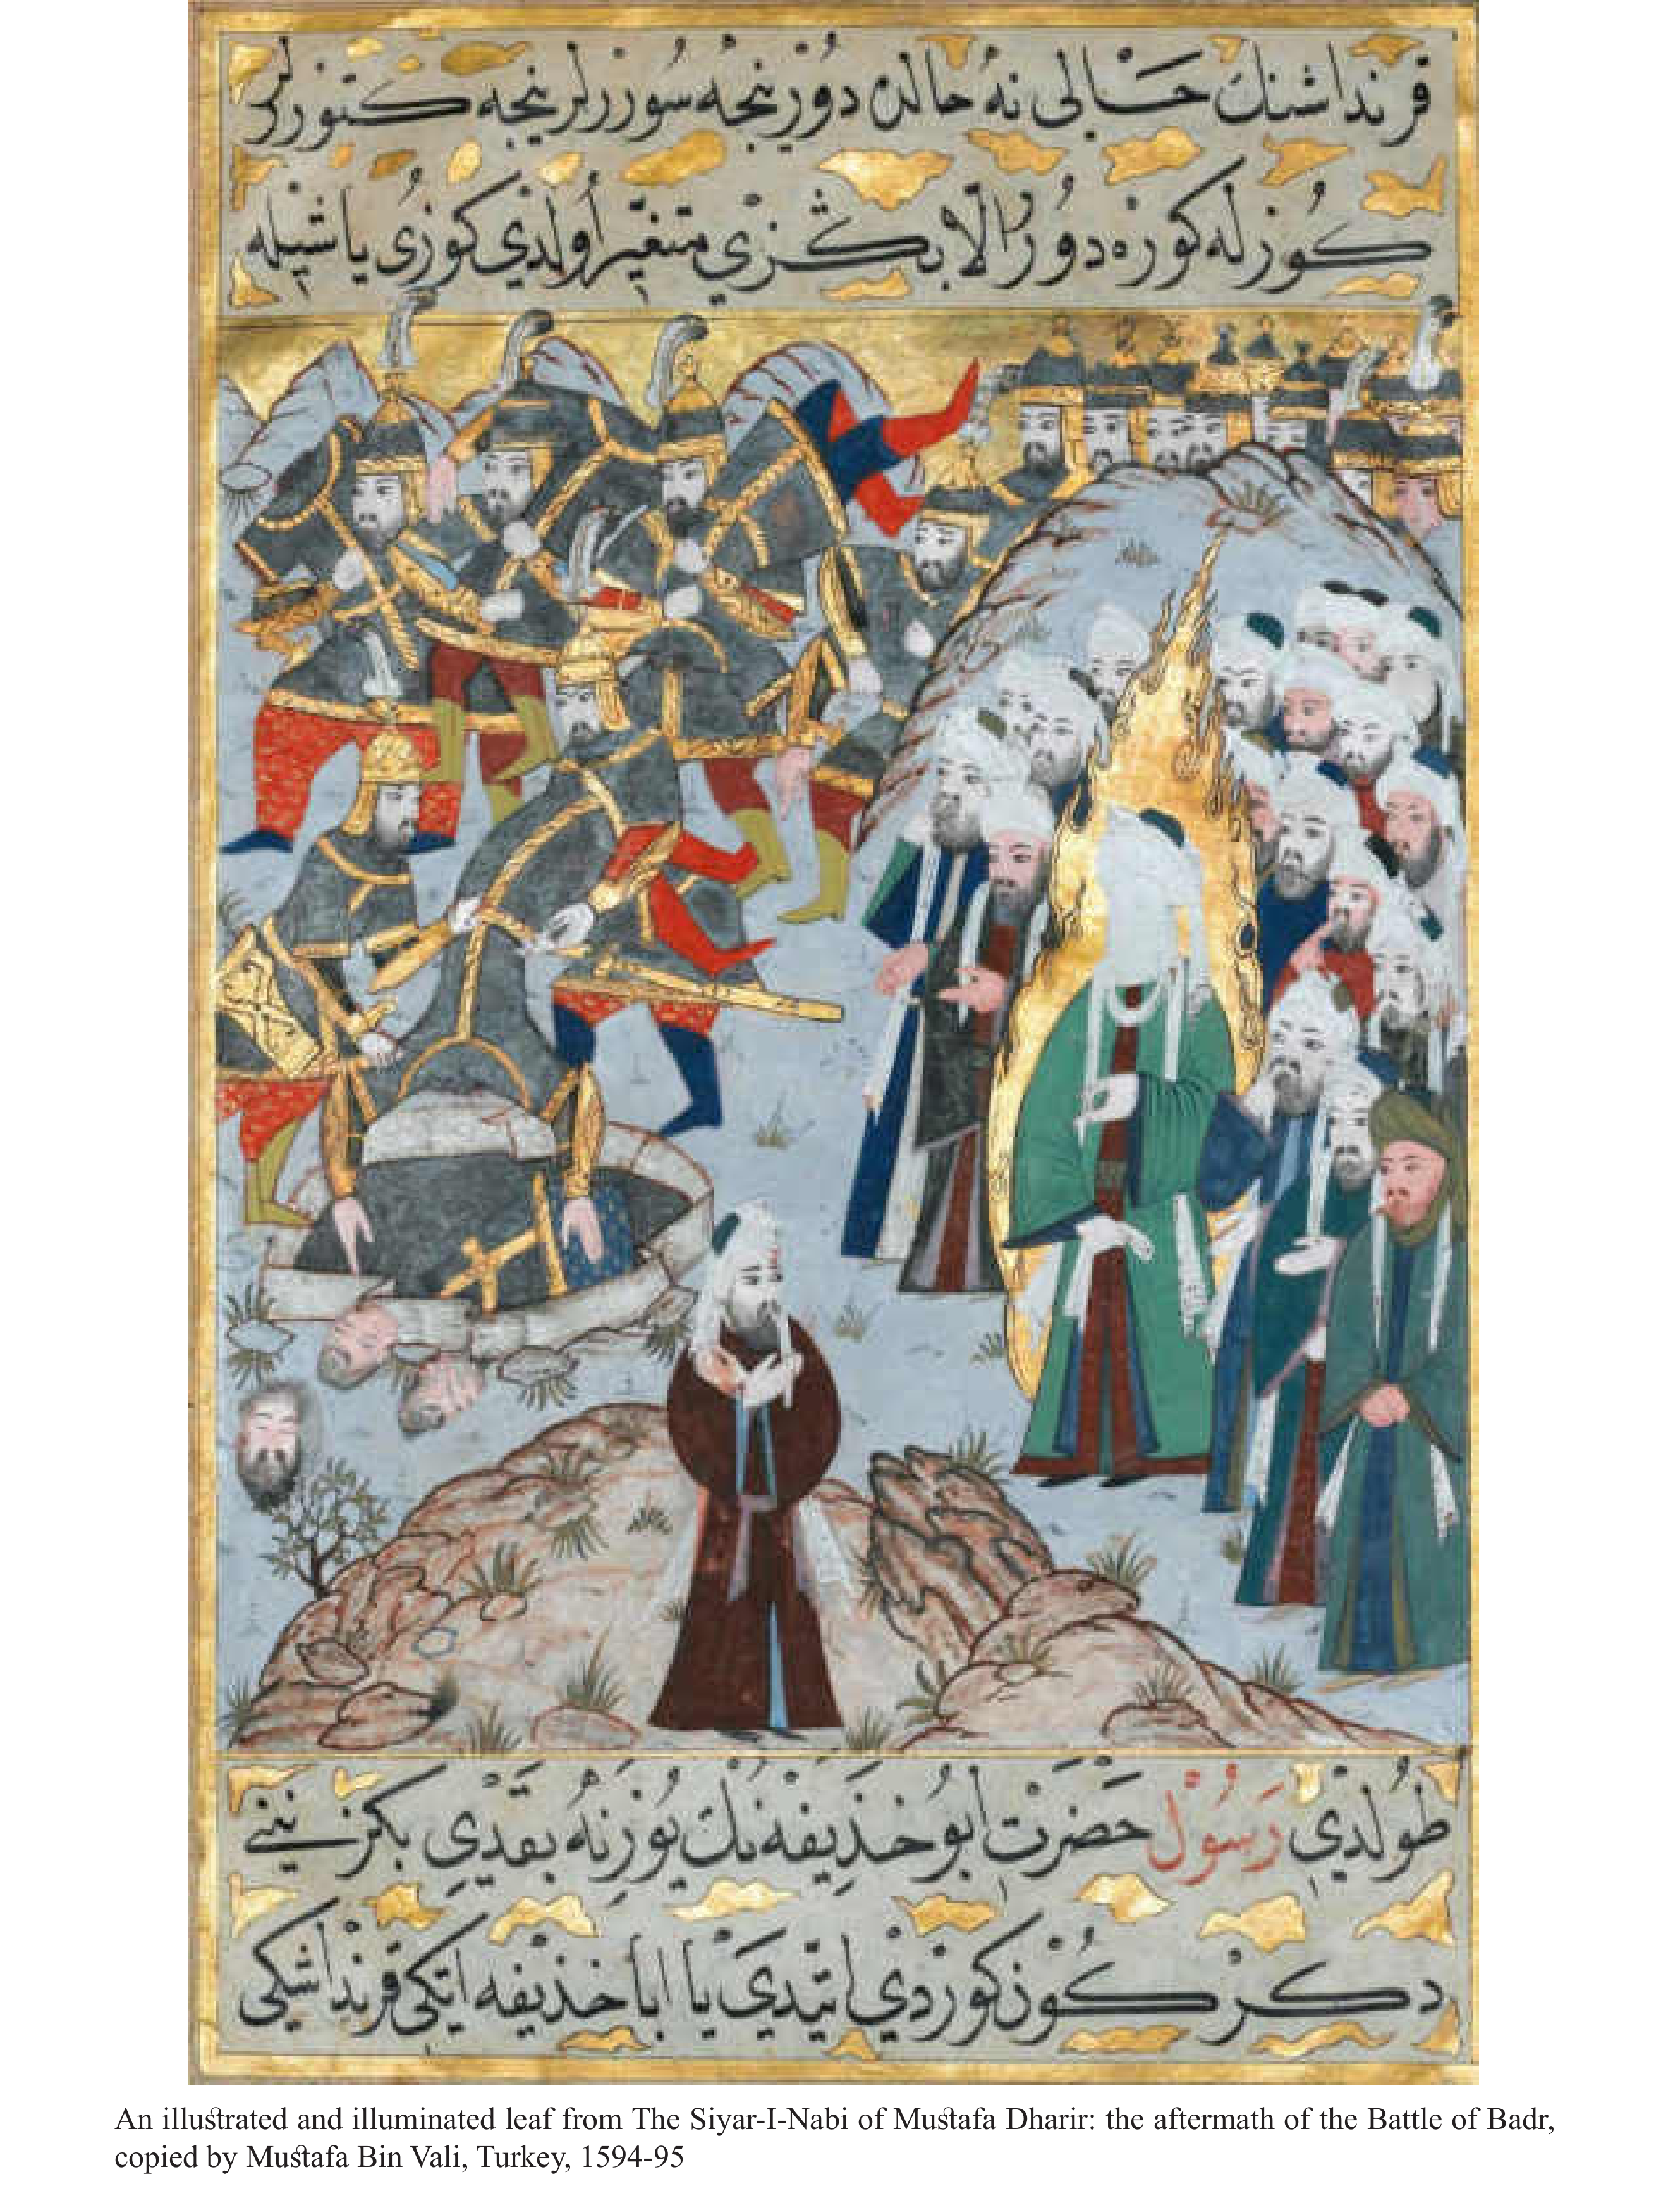 قرنداشنك حالى نه حالدن دور نیجه سورر لر نیجه كتورر لر
كوزله كوره دور الا بكزي متغیر اولدي كوزى یاشیله
طولدي رسول حضرت ابو حذیفه نك یوزنه بقدي بكز نیتے
دكر كوز كوردي ایتدي یا ابا حذیفه ایكى قرنداشكى
An illustrated and illuminated leaf from The Siyar-I-Nabi of Mustafa Dharir: the aftermath of the Battle of Badr,
copied by Mustafa Bin Vali, Turkey, 1594-95